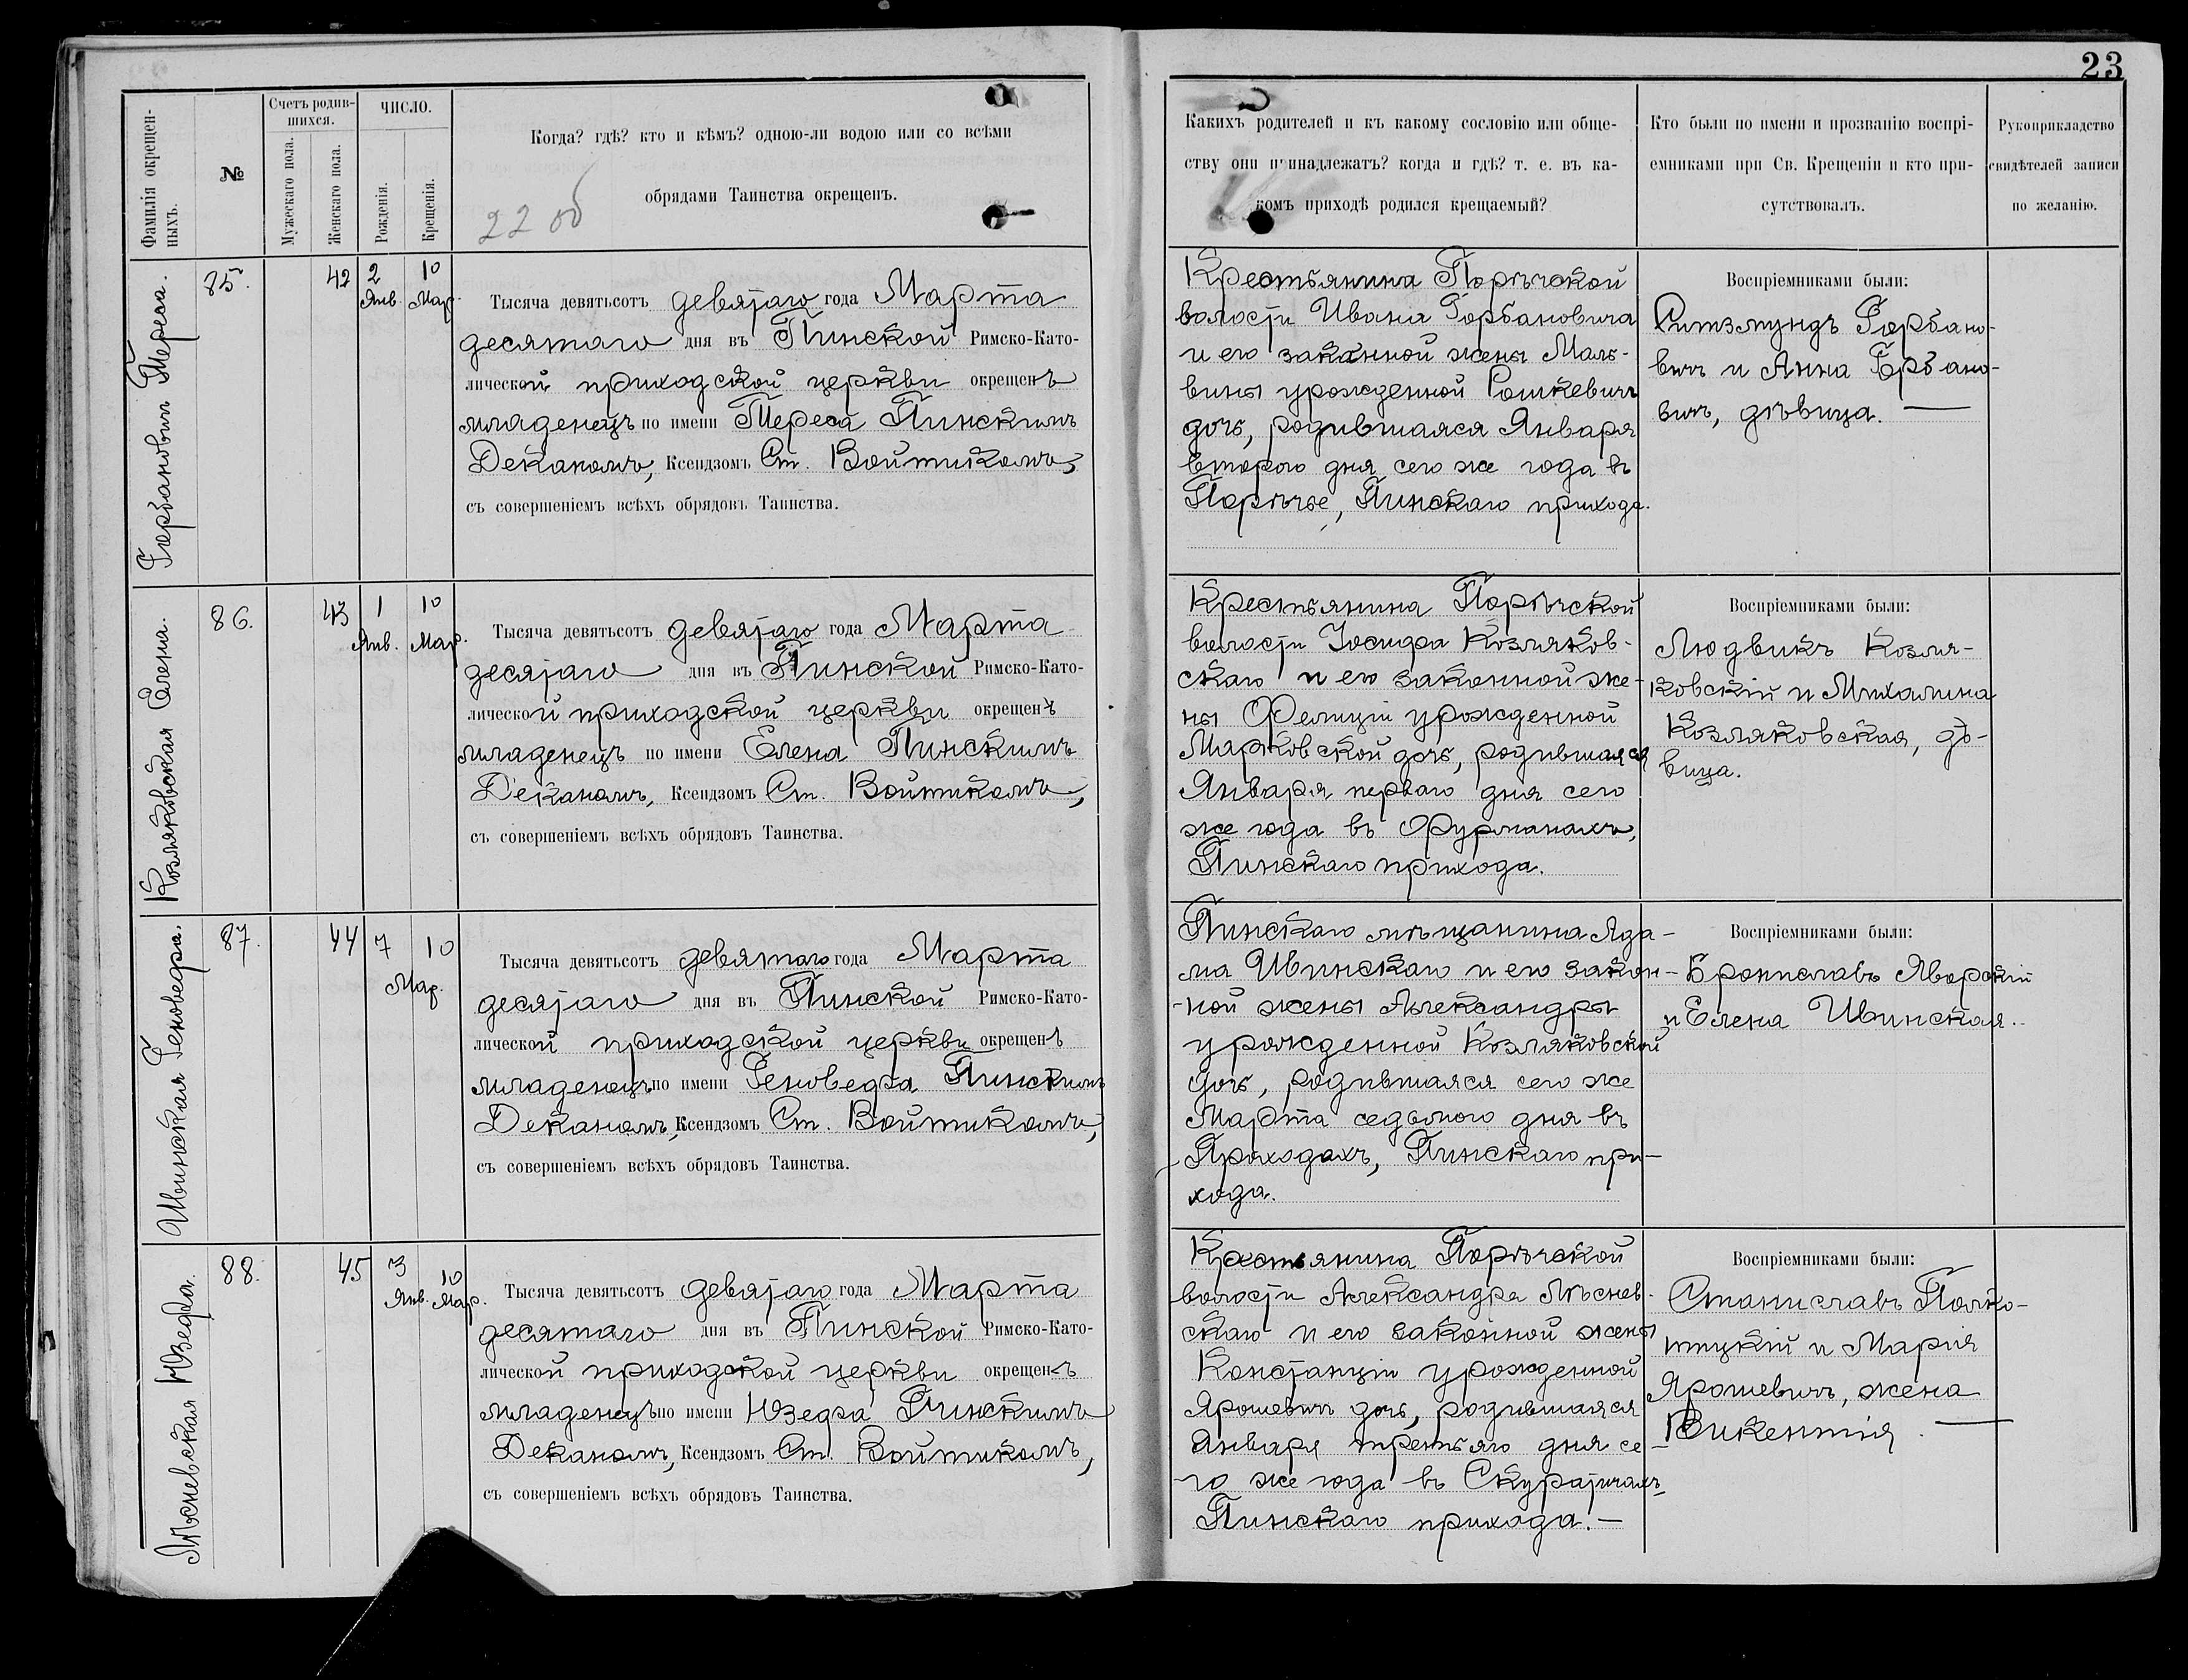 23
Фамилія окрещен-
ныхъ.
№
Счетъ родив-
шихся.
Мужескаго пола.
Женскаго пола.
ЧИСЛО.
Рожденія.
Крещенія.
Когда? гдѣ? кто и кѣмъ? одною-ли водою или со всѣми
обрядами Таинства окрещенъ.
22 об
Какихъ родителей и къ какому сословію или обще-
ству они принадлежатъ? когда и гдѣ? т. е. въ ка-
комъ приходѣ родился крещаемый?
Кто были по имени и прозванію воспрі-
емниками при Св. Крещеніи и кто при-
сутствовалъ.
Рукоприкладство
свидѣтелей записи
по желанію.
Горбановичъ Тереса.
85.
42
2
Янв.
10
Мар.
Тысяча девятьсотъ девятаго года Марта
десятаго дня въ Пинской Римско-Като-
лической приходской церкви окрещенъ
младенецъ по имени Тереса Пинскимъ
Деканомъ, Ксендзомъ Ст. Войтикомъ,
съ совершеніемъ всѣхъ обрядовъ Таинства.
Крестьянина Порѣчской
волости Ивана Горбановича
и его законной жены Маль-
вины урожденной Рошкевичъ
дочь, родившаяся Января
второго дня сего же года въ
Порѣчье, Пинскаго прихода.
Воспріемниками были:
Сигизмундъ Горбано-
вичъ и Анна Горбано-
вичъ, дѣвица. —
Козляковская Елена.
86.
43
1
Янв.
10
Мар.
Тысяча девятьсотъ девятаго года Марта
десятаго дня въ Пинской Римско-Като-
лической приходской церкви окрещенъ
младенецъ по имени Елена Пинскимъ
Деканомъ, Ксендзомъ Ст. Войтикомъ,
съ совершеніемъ всѣхъ обрядовъ Таинства.
Крестьянина Порѣчской
волости Іосифа Козляков-
скаго и его законной же-
ны Фелиціи урожденной
Марковской дочь, родившаяся
Января перваго дня сего
же года въ Фурманахъ,
Пинскаго прихода.
Воспріемниками были:
Людвикъ Козля-
ковскій и Михалина
Козляковская, дѣ-
вица.
Ивинская Геноведа.
87.
44
7
10
Мар.
Тысяча девятьсотъ девятаго года Марта
десятаго дня въ Пинской Римско-Като-
лической приходской церкви окрещенъ
младенецъ по имени Геноведа Пинскимъ
Деканомъ, Ксендзомъ Ст. Войтикомъ,
съ совершеніемъ всѣхъ обрядовъ Таинства.
Пинскаго мѣщанина Ада-
ма Ивинскаго и его закон-
ной жены Александры
урожденной Козляковской
дочь, родившаяся сего же
Марта седьмого дня въ
Приходахъ, Пинскаго при-
хода.
Воспріемниками были:
Брониславъ Яворскій
и Елена Ивинская.
Лѣсневская Юзефа.
88.
45
3
Янв.
10
Мар.
Тысяча девятьсотъ девятаго года Марта
десятаго дня въ Пинской Римско-Като-
лической приходской церкви окрещенъ
младенецъ по имени Юзефа Пинскимъ
Деканомъ, Ксендзомъ Ст. Войтикомъ,
съ совершеніемъ всѣхъ обрядовъ Таинства.
Крестьянина Порѣчской
волости Александра Лѣснев-
скаго и его законной жены
Констанціи урожденной
Ярошевичъ дочь, родившаяся
Января третьяго дня се-
го же года въ Скуратичахъ
Пинскаго прихода. —
Воспріемниками были:
Станиславъ
и Марія
Ярошевичъ, жена
Викентія. —